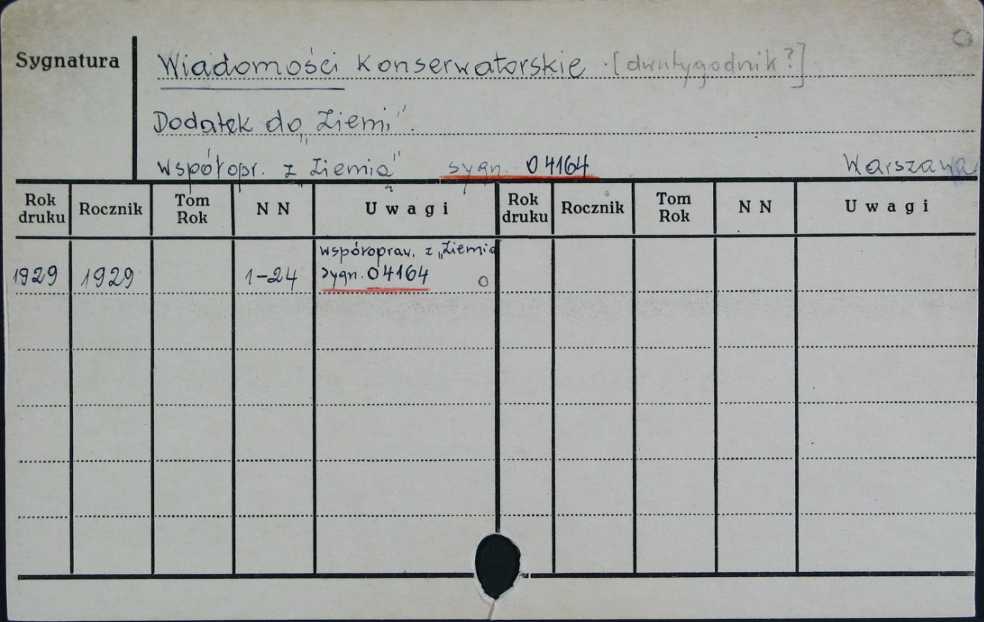 Sygnatura
Wiadomości Konserwatorskie [dwutygodnik?]
Dodatek do „Ziemi".
Współopr. z „Ziemia" sygn. 04164 Warszawa
Rok druku Rocznik Tom Rok NN Uwagi Rok druku Rocznik Tom Rok NN Uwagi
wspóropraw. z „Ziemia
1929 1929 1-24 sygn. 04164 o